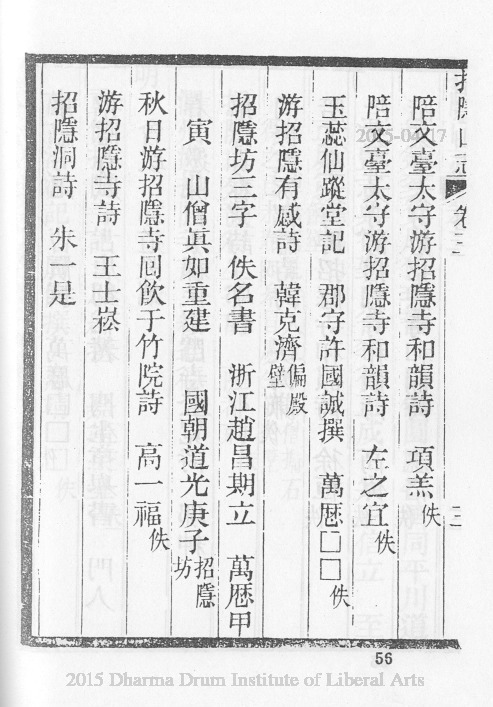 招隱山志 卷三 三
陪文臺太守游招隱寺和韻詩 項羔 佚
陪文臺太守游招隱寺和韻詩 左之宜 佚
玉蕊仙蹤堂記 郡守許國誠撰 萬厯□□ 佚
游招隱有感詩 韓克濟 偏殿壁
招隱坊三字 佚名書 浙江趙昌期立 萬厯甲
寅 山僧眞如重建 國朝道光庚子 招隱坊
秋日游招隱寺囘飲于竹院詩 高一福 佚
游招隱寺詩 王士崧
招隱洞詩 朱一是
56
2015-04-17
2015 Dharma Drum Institute of Liberal Arts